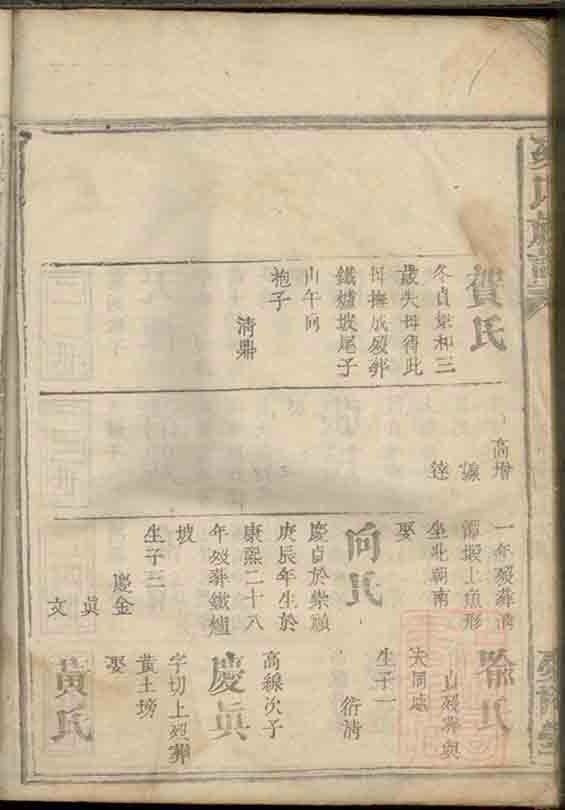 賀氏
冬貞繁和三
歲失母侍此
母撫成歿葬
鐵爐坡尾子
山午向
抱子
清鼎
高增
達
一年歿葬
上魚形
坐北朝南
娶
向氏
慶貞於崇禎
庚辰年生於
康熙二十八
年歿葬鐵爐
坡
生子二
慶金
文
喻氏
貞歿葬與
夫同
生子一
衍清
高線次子
慶眞
字切上歿葬
黃土塝
娶
黃氏
氏族譜